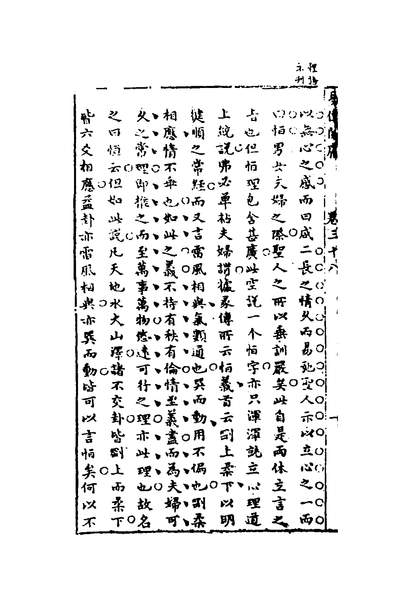 以無心之感而曰咸二長之情久而易𣣔聖人示以立心之一而
曰恒男女夫婦之際聖人之所以垂訓嚴矣此自是兩体立言之
吉也但恒理包含甚廣此空説一个恒字亦只渾渾説立心理道
上統説弗必單粘夫婦謂據彖傳所云恒義首云剛上柔下以明
健順之常經而又言雷風相與氣類通也巽而動用不偏也剛柔
相應情不乖也如此之義不特有秩有倫情至義盡而為夫婦可
久之常理即推之而至萬事萬物悠遠可行之理亦此理也故名
之曰恒云但如此説凡天地水火山澤諸不交卦皆剛上而柔下
皆六爻相應益卦亦雷風相與亦巽而動皆可以言恒矣何以不